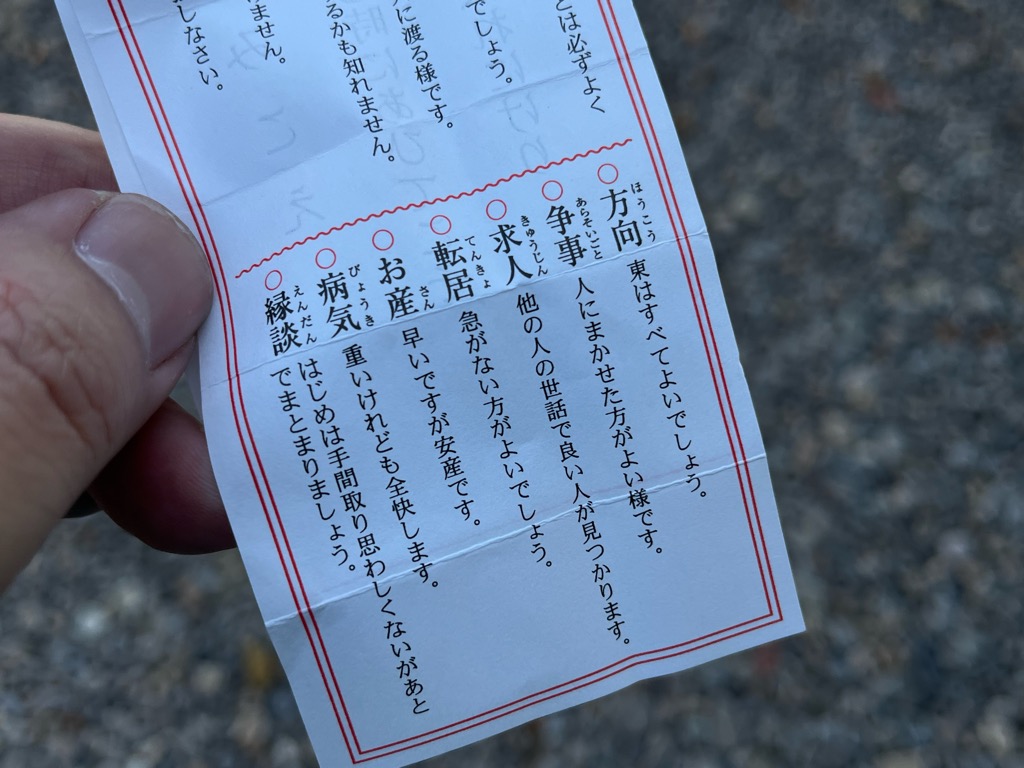 とは必ずよく
でしょう。
に渡る様です。
るかも知れません。
ません。
しなさい。
○方向 東はすべてよいでしょう。
ほうこう
○争事 人にまかせた方がよい様です。
あらそいごと
○求人 他の人の世話で良い人が見つかります。
きゅうじん
○転居 急がない方がよいでしょう。
てんきょ
○お産 早いですが安産です。
さん
○病気 重いけれども全快します。
びょうき
○縁談 はじめは手間取り思わしくないがあと
えんだん
でまとまりましょう。